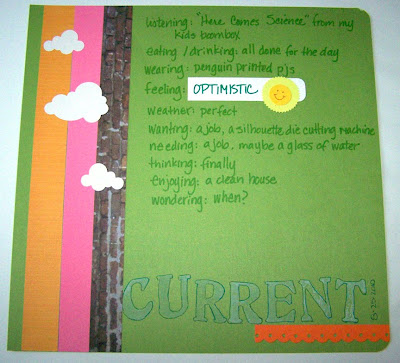 listening: "Here Comes Science" from my
kids boombox
eating / drinking: all done for the day
wearing: penguin printed pjs
feeling: OPTIMISTIC
weather: perfect
wanting: a job, a silhouette die cutting machine
needing: a job, maybe a glass of water
thinking: finally
enjoying: a clean house
wondering: when?
CURRENT